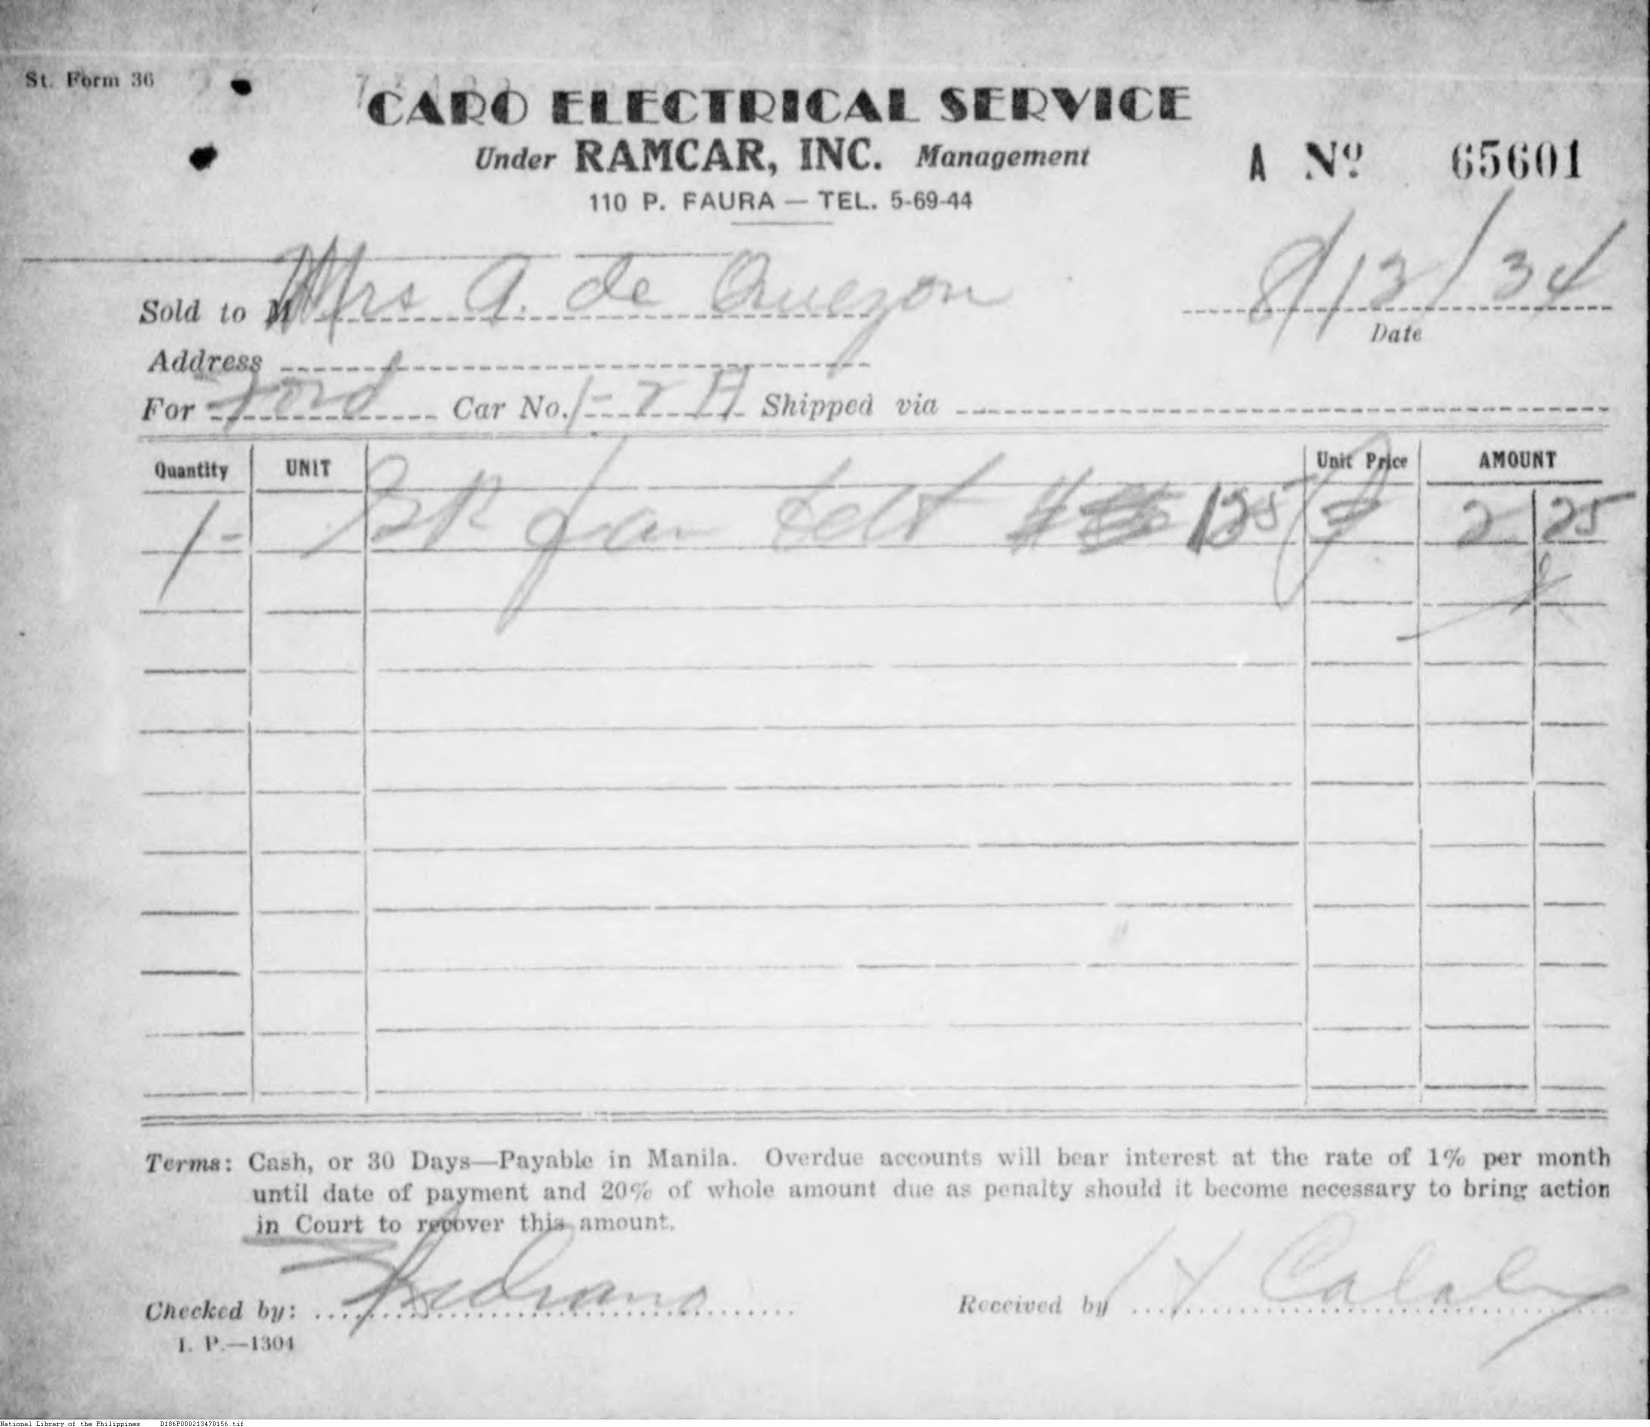 St. Form 36
CARO ELECTRICAL SERVICE
Under RAMCAR, INC. Management
A Nº 65601
110 P. FAURA — TEL. 5-69-44
Sold to M Mrs A. de Quezon
8/13/34
Date
Address
For Ford Car No. 1-2 A Shipped via
Quantity UNIT Unit Price AMOUNT
1- fan belt 2 25
Terms: Cash, or 30 Days—Payable in Manila. Overdue accounts will bear interest at the rate of 1% per month
until date of payment and 20% of whole amount due as penalty should it become necessary to bring action
in Court to recover this amount.
Checked by: Medrano
Received by H
I. P.—1304
National Library of the Philippines D186P000213470156.tif